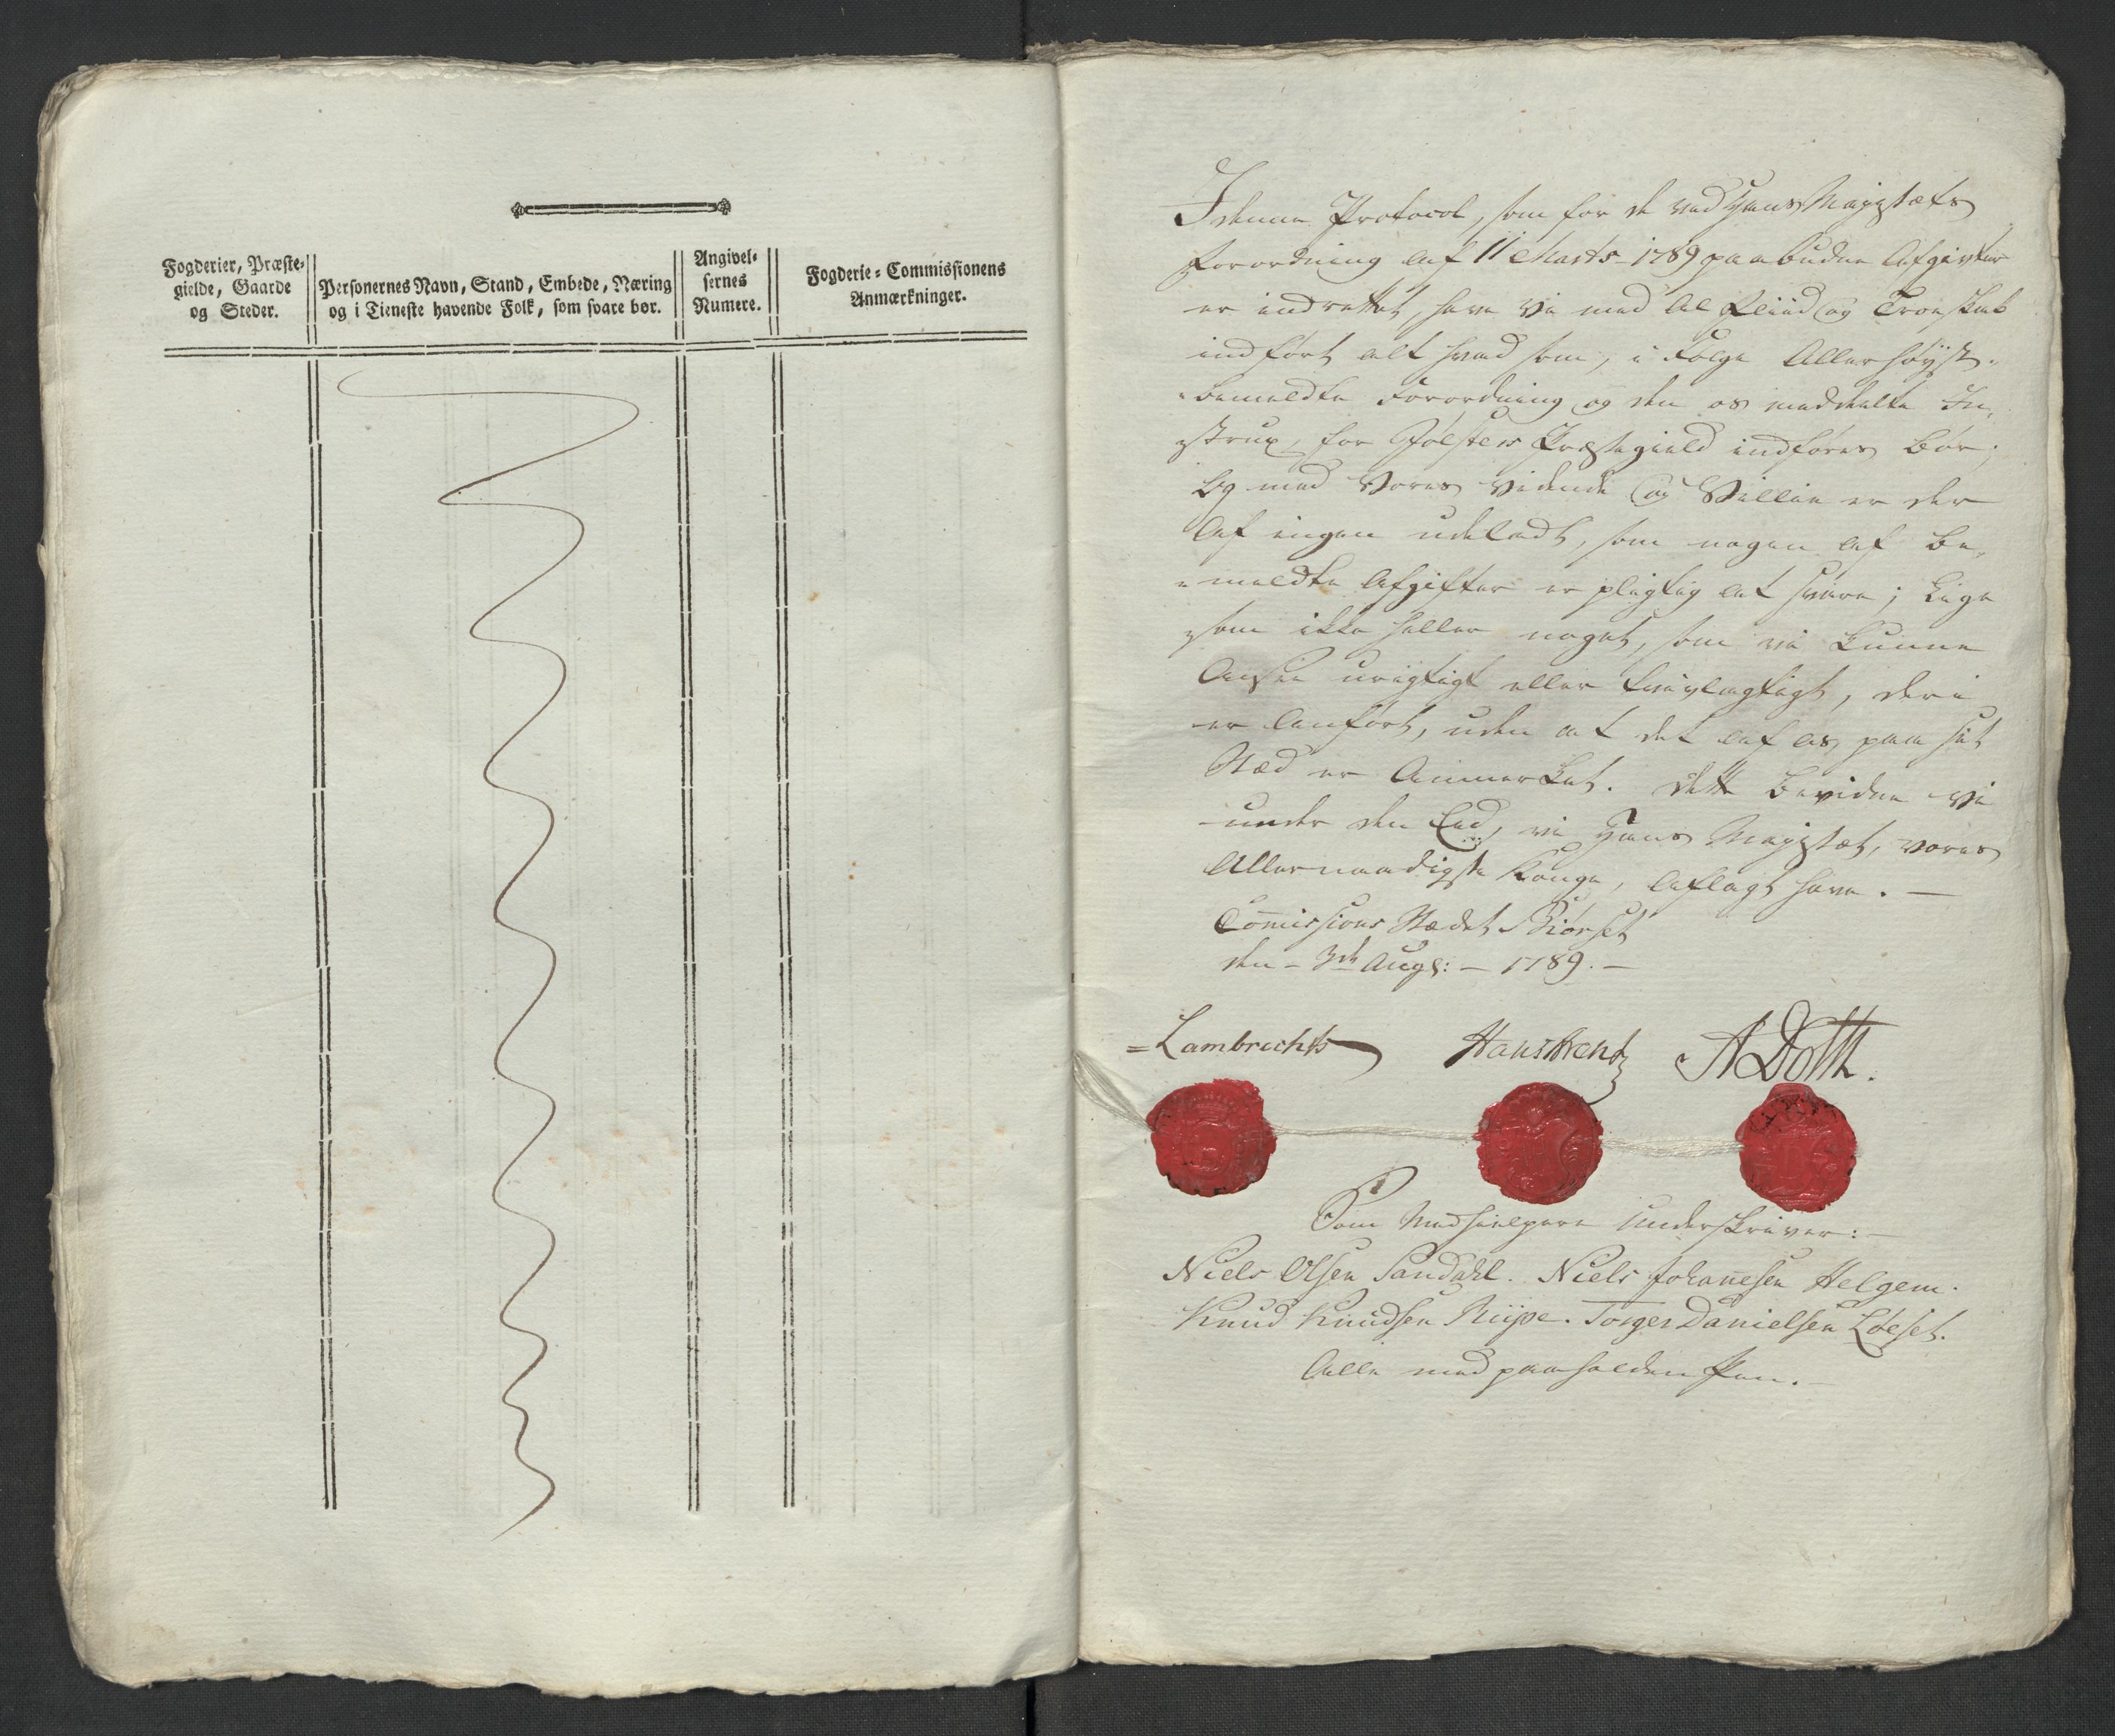 Fogderier, Præste-
gielde, Gaarde
og Steder.
Personernes Navn, Stand, Embede, Næring
og i Tieneste havende Folk, som svare bør.
Angivel-
sernes
Numere.
Fogderie-Commissionens
Anmærkninger.
I denne Protocol, som for de ved Hans Majestæts
Forordning af 11 Marts 1789 paabudne Afgivter
er indrettet, have Vi med al Fliid og Troeskab
indført alt hvad som, i Følge Allerhøyst-
bemeldte Forordning og den os meddeelte In-
strux, for Jølsters Præstegield indføres bør;
og med Vores Vidende og Villie er der
af ingen udeladt, som nogen af be-
meldte Afgifter er pligtig at svare; Lige
som ikke heller noget, som vi kunne
Ansee urigtigt eller tvivlagtigt, deri
er Anført, uden at det af os paa sit
Stæd er Anmerket. Dette bevidne Vi
under den Eed, vi Hans Majestæt, vores
Allernaadigste Konge, aflagt have. —
Com̄issions Stædet Schiørset
den 3de Augs: — 1789. —
Lambrechts Hans Krentz A Dotth.
Som Medhielpere Underskriver: —
Niels Olsen Sandahl. Niels Johan̄esen Helgem.
Knud Knudsen Riipe. Torger Danielsen Løeset.
Alle med paaholden Pen. —